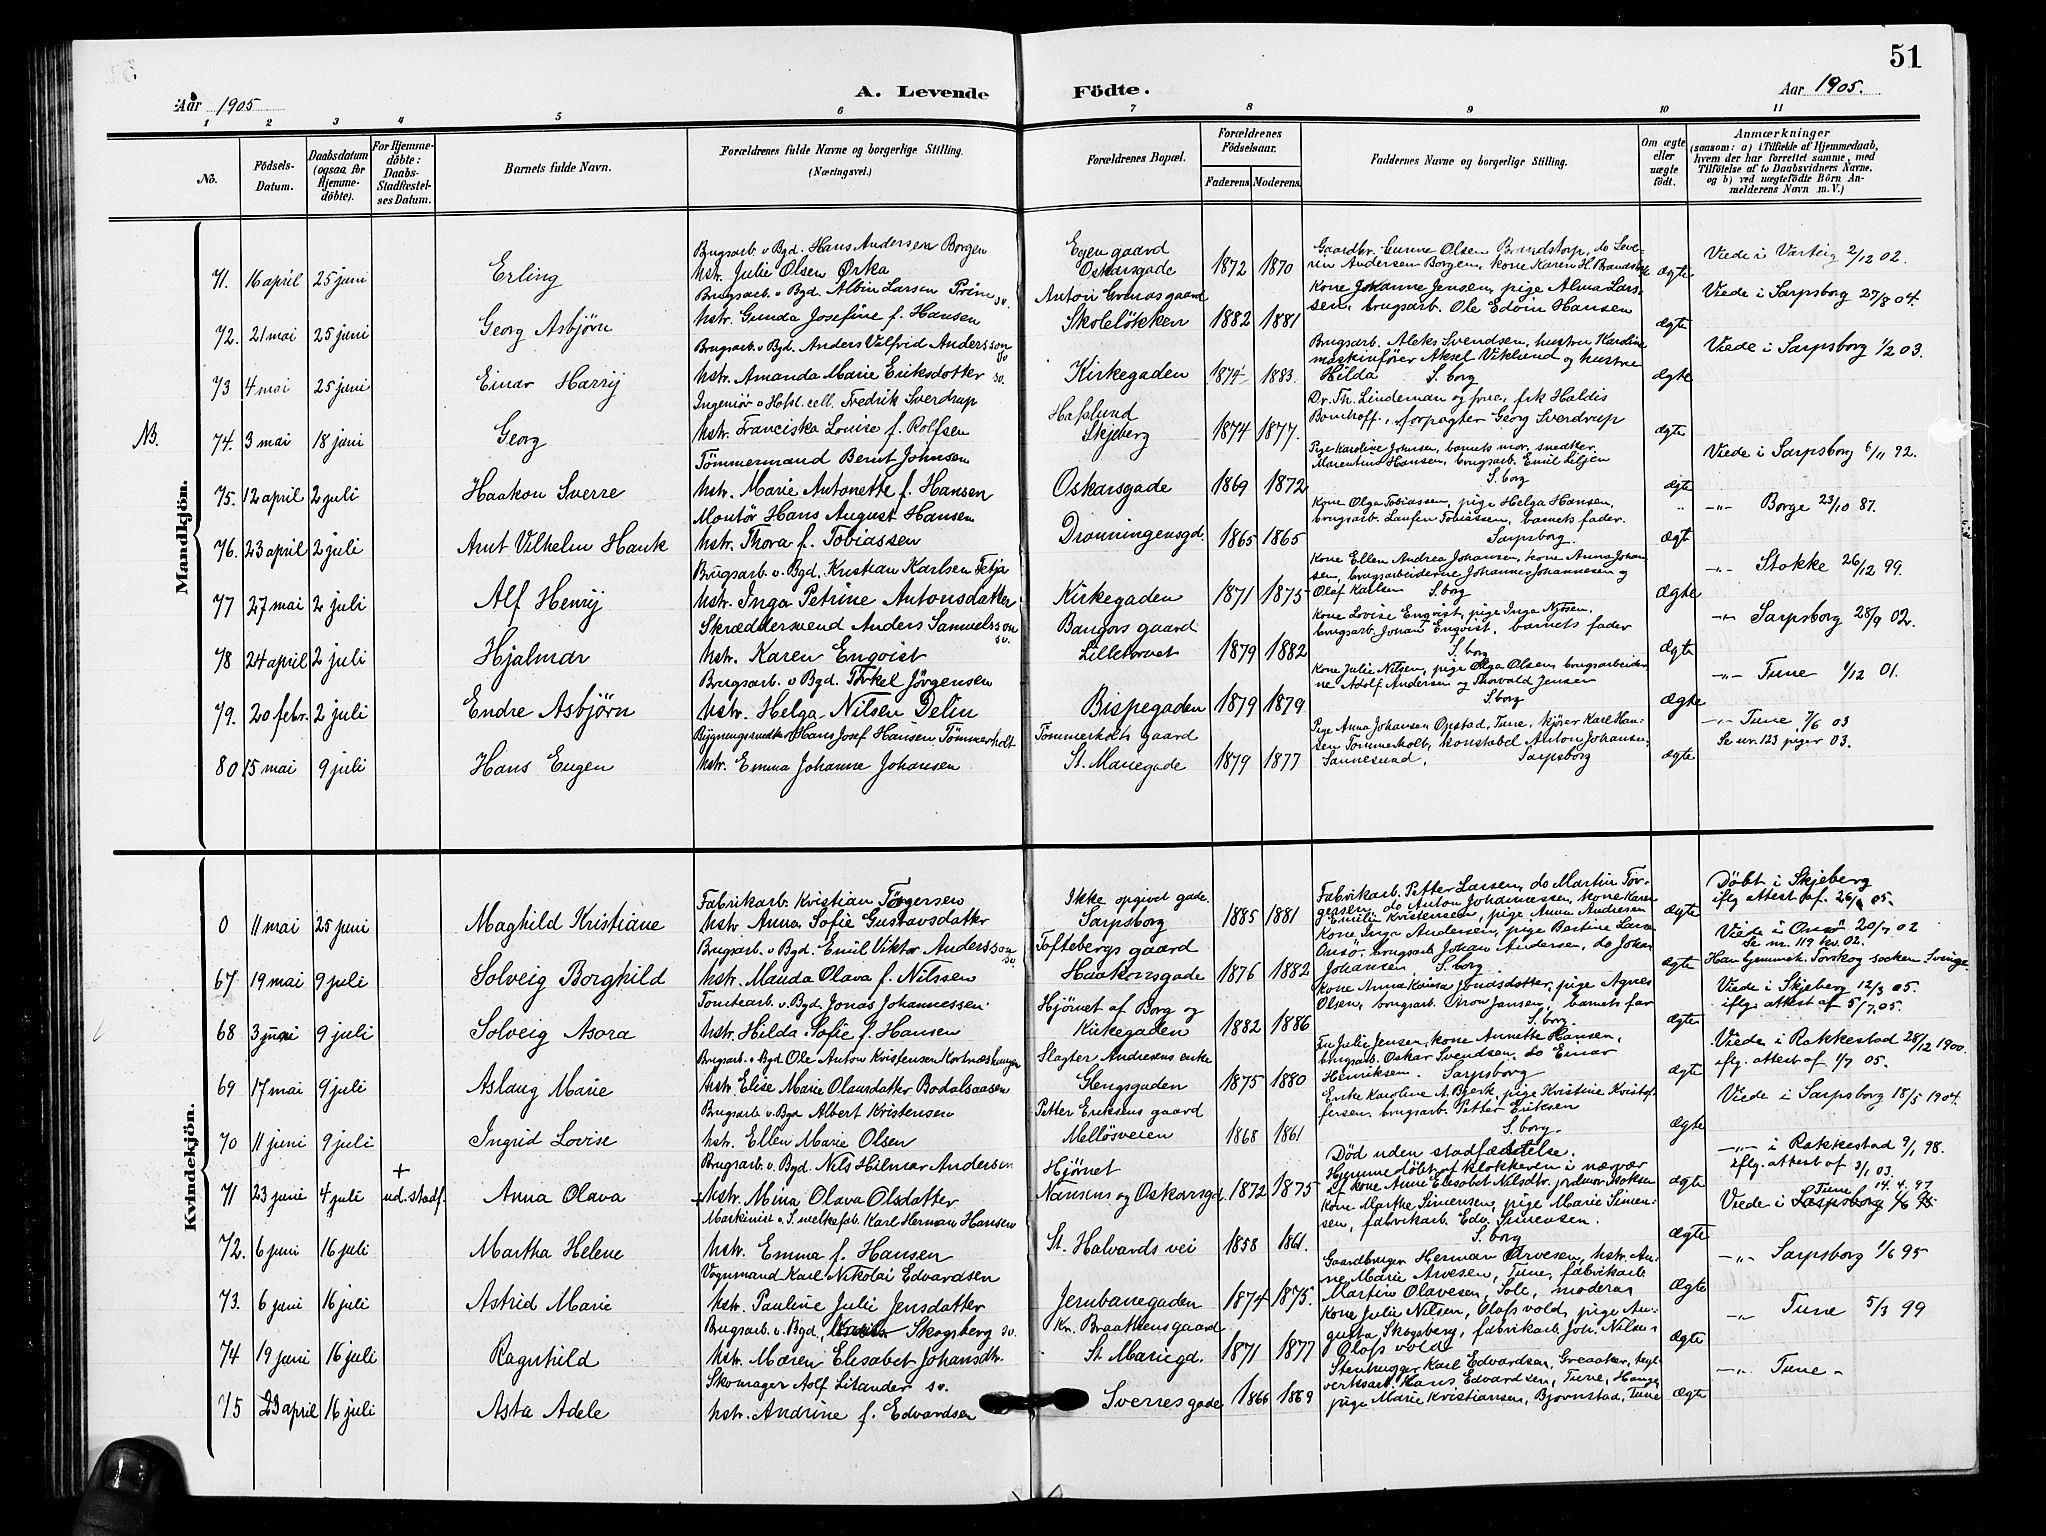 51
Aar 1905 A. Levende Födte. Aar 1905.
1 2 3 4 5 6 7 8 9 10 11
No. Födsels-Datum. Daabsdatum (ogsaa for Hjemme-döbte). For Hjemme-döbte: Daabs-Stadfæstel-ses Datum. Barnets fulde Navn. Forældrenes fulde Navne og borgerlige Stilling. (Næringsvei.) Forældrenes Bopæl. Forældrenes Födselsaar. Faderens. Moderens. Faddernes Navne og borgerlige Stilling. Om ægte eller uægte födt. Anmærkninger (saasom: a) i Tilfælde af Hjemmedaab, hvem der har forrettet samme, med Tilföielse af to Daabsvidners Navne, og b) ved uægtefödte Börn An-melderens Navn m. V.)
Mandkjön.
Brugsarb. v Bgd. Hans Andersen Borgen Egen gaard Gaardbr. Gunne Olsen Brandstorp, do Seve-
71. 16 april 25 juni Erling hstr. Julie Olsen Ørka Oskarsgade 1872 1870 rin Andersen Borgen, kone Karen H. ægte Viede i Varteig 2/12 02.
Brugsarb. v Bgd. Albin Larsen Prim sv. Anton gaard Kone Johanne Jensen, pige Alma Lars-
72. 21 mai 25 juni Georg Asbjørn hstr. Gunda Josefine f. Hansen Skoleløkken 1882 1881 sen, brugsarb. Ole Edvin Hansen ægte Viede i Sarpsborg 27/8 04.
Brugsarb. v Bgd. Anders Valfrid Andersson sv Brugsarb. Aleks Svendsen, hustru Karoline
73 4 mai 25 juni Einar Harry hstr. Amanda Marie Eriksdotter sv. Kirkegaden 1874 1883. maskinfører Aksel Viklund og hustru Hilda S. borg ægte Viede i Sarpsborg 1/2 03.
Ingeniör v Hafsl. cell. Fredrik Sverdrup Hafslund Dr. Th. Lindeman og frue, frk Haldis
NB. 74. 3 mai 18 juni Georg hstr. Franciska Louise f. Rolfsen Skjeberg 1874 1877. Bomhoff, forpagter Georg Sverdrup ægte
Tömmermand Bernt Johnsen Pige Karoline Johnsen, barnets mor, snedker
75. 12 april 2 juli Haakon Sverre hstr. Marie Antonette f. Hansen Oskarsgade 1869 1872 Marentius Hansen, brugsarb. Emil Liljen S. borg ægte Viede i Sarpsborg 6/11 92.
Montör Hans August Hansen Kone Olga Tobiassen, pige Helga Hansen,
76. 23 april 2 juli Arnt Vilhelm Hauk hstr. Thora f. Tobiassen Dronningensgd. 1865 1865 brugsarb. Laufen Tobiassen, barnets fader. Sarpsborg. ægt -"- Borge 23/10 87.
Brugsarb. v. Bgd. Kristian Karlsen Fetja Kone Ellen Andrea Johansen, kone Anna Johan
77 27 mai 2 juli Alf Henry hstr. Inga Petrine Antonsdatter Kirkegaden 1871 1875 sen, brugsarbeiderne Johannes Johannesen og Olaf Karlsen S. borg ægte -"- Stokke 26/12 99.
Skræddersvend Anders Samuelsson sv. Bangors gaard Kone Lovise Enqvist, pige Inga
78 24 april 2 juli Hjalmar hstr. Karen Enqvist Lilletorvet 1879 1882 brugsarb Johan Enqvist, barnets fader S. borg ægte -"- Sarpsborg 28/9 02.
Brugsarb. v Bgd. Torkel Jørgensen Kone Julie Nilsen, pige Olga Olsen, brugsarbeider
79. 20 febr. 2 juli Endre Asbjørn hstr. Helga Nilsen Delin Bispegaden 1879 1879 ne Adolf Andersen og Thorvald Jensen S. borg ægte -"- Tune 1/12 01.
Bygningssnedker Hans Josef Hansen Tömmerholt Tömmerholts gaard Pige Anna Johansen Opstad, Tune, kjører Karl Han-
80 15 mai 9 juli Hans Eugen hstr. Emma Johanne Johansen St. Mariegade 1879 1877 sen Tömmerholt, konstabel Anton Johansen Sannesund, Sarpsborg ægte -"- Tune 7/6 03 Se nr. 123 piger 03.
Kvindekjön.
Fabrikarb. Kristian Törgersen Ikke opgivet gade. Fabrikarb. Petter Larsen, do Martin Tor-
0 11 mai 25 juni Maghild Kristiane hstr. Anna Sofie Gustavsdatter Sarpsborg 1885 1881 gersen, do Anton Johannessen, kone Karen Emilie Kristensen, pige Anna Andresen ægte Døbt i Skjeberg iflg attest af 26/ 05.
Brugsarb. v Bgd. Emil Viktor Andersson sv. Toftebergs gaard Kone Inga Andersen, pige Bertine Larsen
67 19 mai 9 juli Solveig Borghild hstr. Manda Olava f. Nilssen Haakonsgade 1876 1882 Onsö, brugsarb Johan Andersen, do Johan Johansen S. borg. ægte Viede i Onsø 20/7 02 Se nr. 119 02. Han hjemmeh. Torskog socken Sverige
Tomtearb. v Bgd Jonas Johannessen Hjörnet af Borg og Kone Anna Jonasdotter, pige Agnes
68 3 juni 9 juli Solveig Asora hstr. Hilda Sofie f. Hansen Kirkegaden 1882 1886 Olsen, brugsarb. Jansen, barnets far S. borg. ægte Viede i Skjeberg 12/3 05. iflg. attest af 5/7 05.
Brugsarb. v Bgd Ole Anton Kristensen Slagter Andresens enke Fru Julie Jensen, kone Annette Hansen,
69 17 mai 9 juli Aslaug Marie hstr. Elise Marie Olausdatter Bodalsaasen Glengsgaden 1875 1880 brugsarb Oskar Svendsen, do Einar Henriksen. Sarpsborg ægte Viede i Rakkestad 28/12 1900. iflg. attest af 1/7 05.
Brugsarb v. Bgd Albert Kristensen Petter Eriksens gaard Enke Karoline A. Bjerk, pige Kristine Kristof-
70 11 juni 9 juli Ingrid Lovise hstr. Ellen Marie Olsen Mellösveien 1868 1861 fersen, brugsarb. Petter Eriksen S. borg. ægte Viede i Sarpsborg 18/5 1904.
Brugsarb. v. Bgd. Nils Hilmar Andersen Hjörnet Död uden stadfæstelse.
71 23 juni 4 juli + ud. stadf. Anna Olava hstr. Mina Olava Olsdatter Nansens og Oskarsgd. 1872 1875 Hjemmedöbt af klokkeren i nærvær af kone Anne Elisabet Nilsdtr. jordmor Isaksen ægte -"- i Rakkestad 9/1 98. iflg. attest af 3/1 03.
Maskinist v. S. melkefab. Karl Herman Hansen Kone Marthe Simensen, pige Marie Simen-
72. 6 juni 16 juli Martha Helene hstr. Emma f. Hansen St. Halvards vei 1858 1861. sen, fabrikarb. Edv. Simensen. S. borg ægte Viede i Sarpsborg Tune 14.4.97
Vognmand Karl Nikolai Edvardsen Gaardbruger Herman Arvesen, hstr. An-
73. 6 juni 16 juli Astrid Marie hstr. Pauline Julie Jensdatter Jernbanegaden 1874 1875. ne Marie Arvesen, Tune, fabrikarb Martin Olavesen, Sole, moderen ægte -"- Sarpsborg 1/6 95
Brugsarb. v. Bgd. Skogsberg sv. Kr. Braathens gaard Kone Julie Nilsen, Olafs vold, pige Au-
74 19 juni 16 juli Ragnhild hstr. Maren Elisabet Johansdtr. St. Mariegd. 1871 1877 gusta Skogsberg, fabrikarb. Joh. Nilsen Olafs vold ægte -"- Tune 5/3 99
Skomager Adolf Litander sv. Stenhugger Karl Edvardsen, Greaaker, tegl-
75 23 april 16 juli Asta Adele hstr. Andrine f. Edvardsen Sverresgade 1866 1869 verksarb. Hans Edvardsen, Tune, pige Marie Kristiansen, Bjørnstad, Tune ægte -"- Tune -